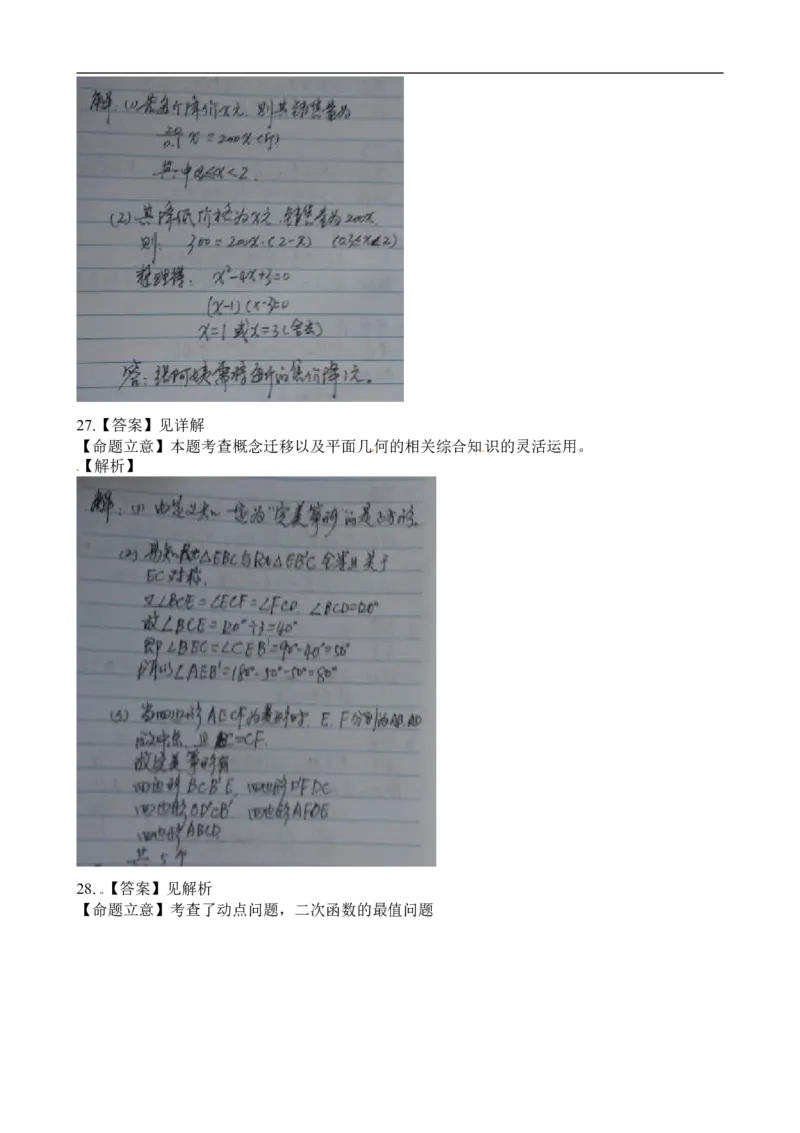 解:(1)若每斤降价x元,则其销售量为
20/0.1 x = 200x(斤)
其中0.3≤x<2.
(2)其降低价格为x元,销售量为200x.
则: 300=200x·(2-x) (0.3≤x≤2)
整理得: x²-4x+3=0
(x-1)(x-3)=0
x=1 或 x=3(舍去)
答:张阿姨需将每斤的售价降1元。
27.【答案】见详解
【命题立意】本题考查概念迁移以及平面几何的相关综合知识的灵活运用。
【解析】
解:(1) 由定义知一定为“完美筝形”的是正方形。
(2) 易知Rt△EBC与Rt△EB'C全等且关于
EC对称,
又∠BCE=∠ECF=∠FCD, ∠BCD=120°
故∠BCE=120°÷3=40°
即∠BEC=∠CEB'=90°-40°=50°
所以∠AEB'=180°-50°-50°=80°
(3) 当四边形AECF为菱形时, E、F分别为AB、AD
=CF.
故完美筝形有
四边形BCB'E, 四边形D'FDC
四边形OD'CB' 四边形AFOE
四边形ABCD
共5个
28.【答案】见解析
【命题立意】考查了动点问题，二次函数的最值问题